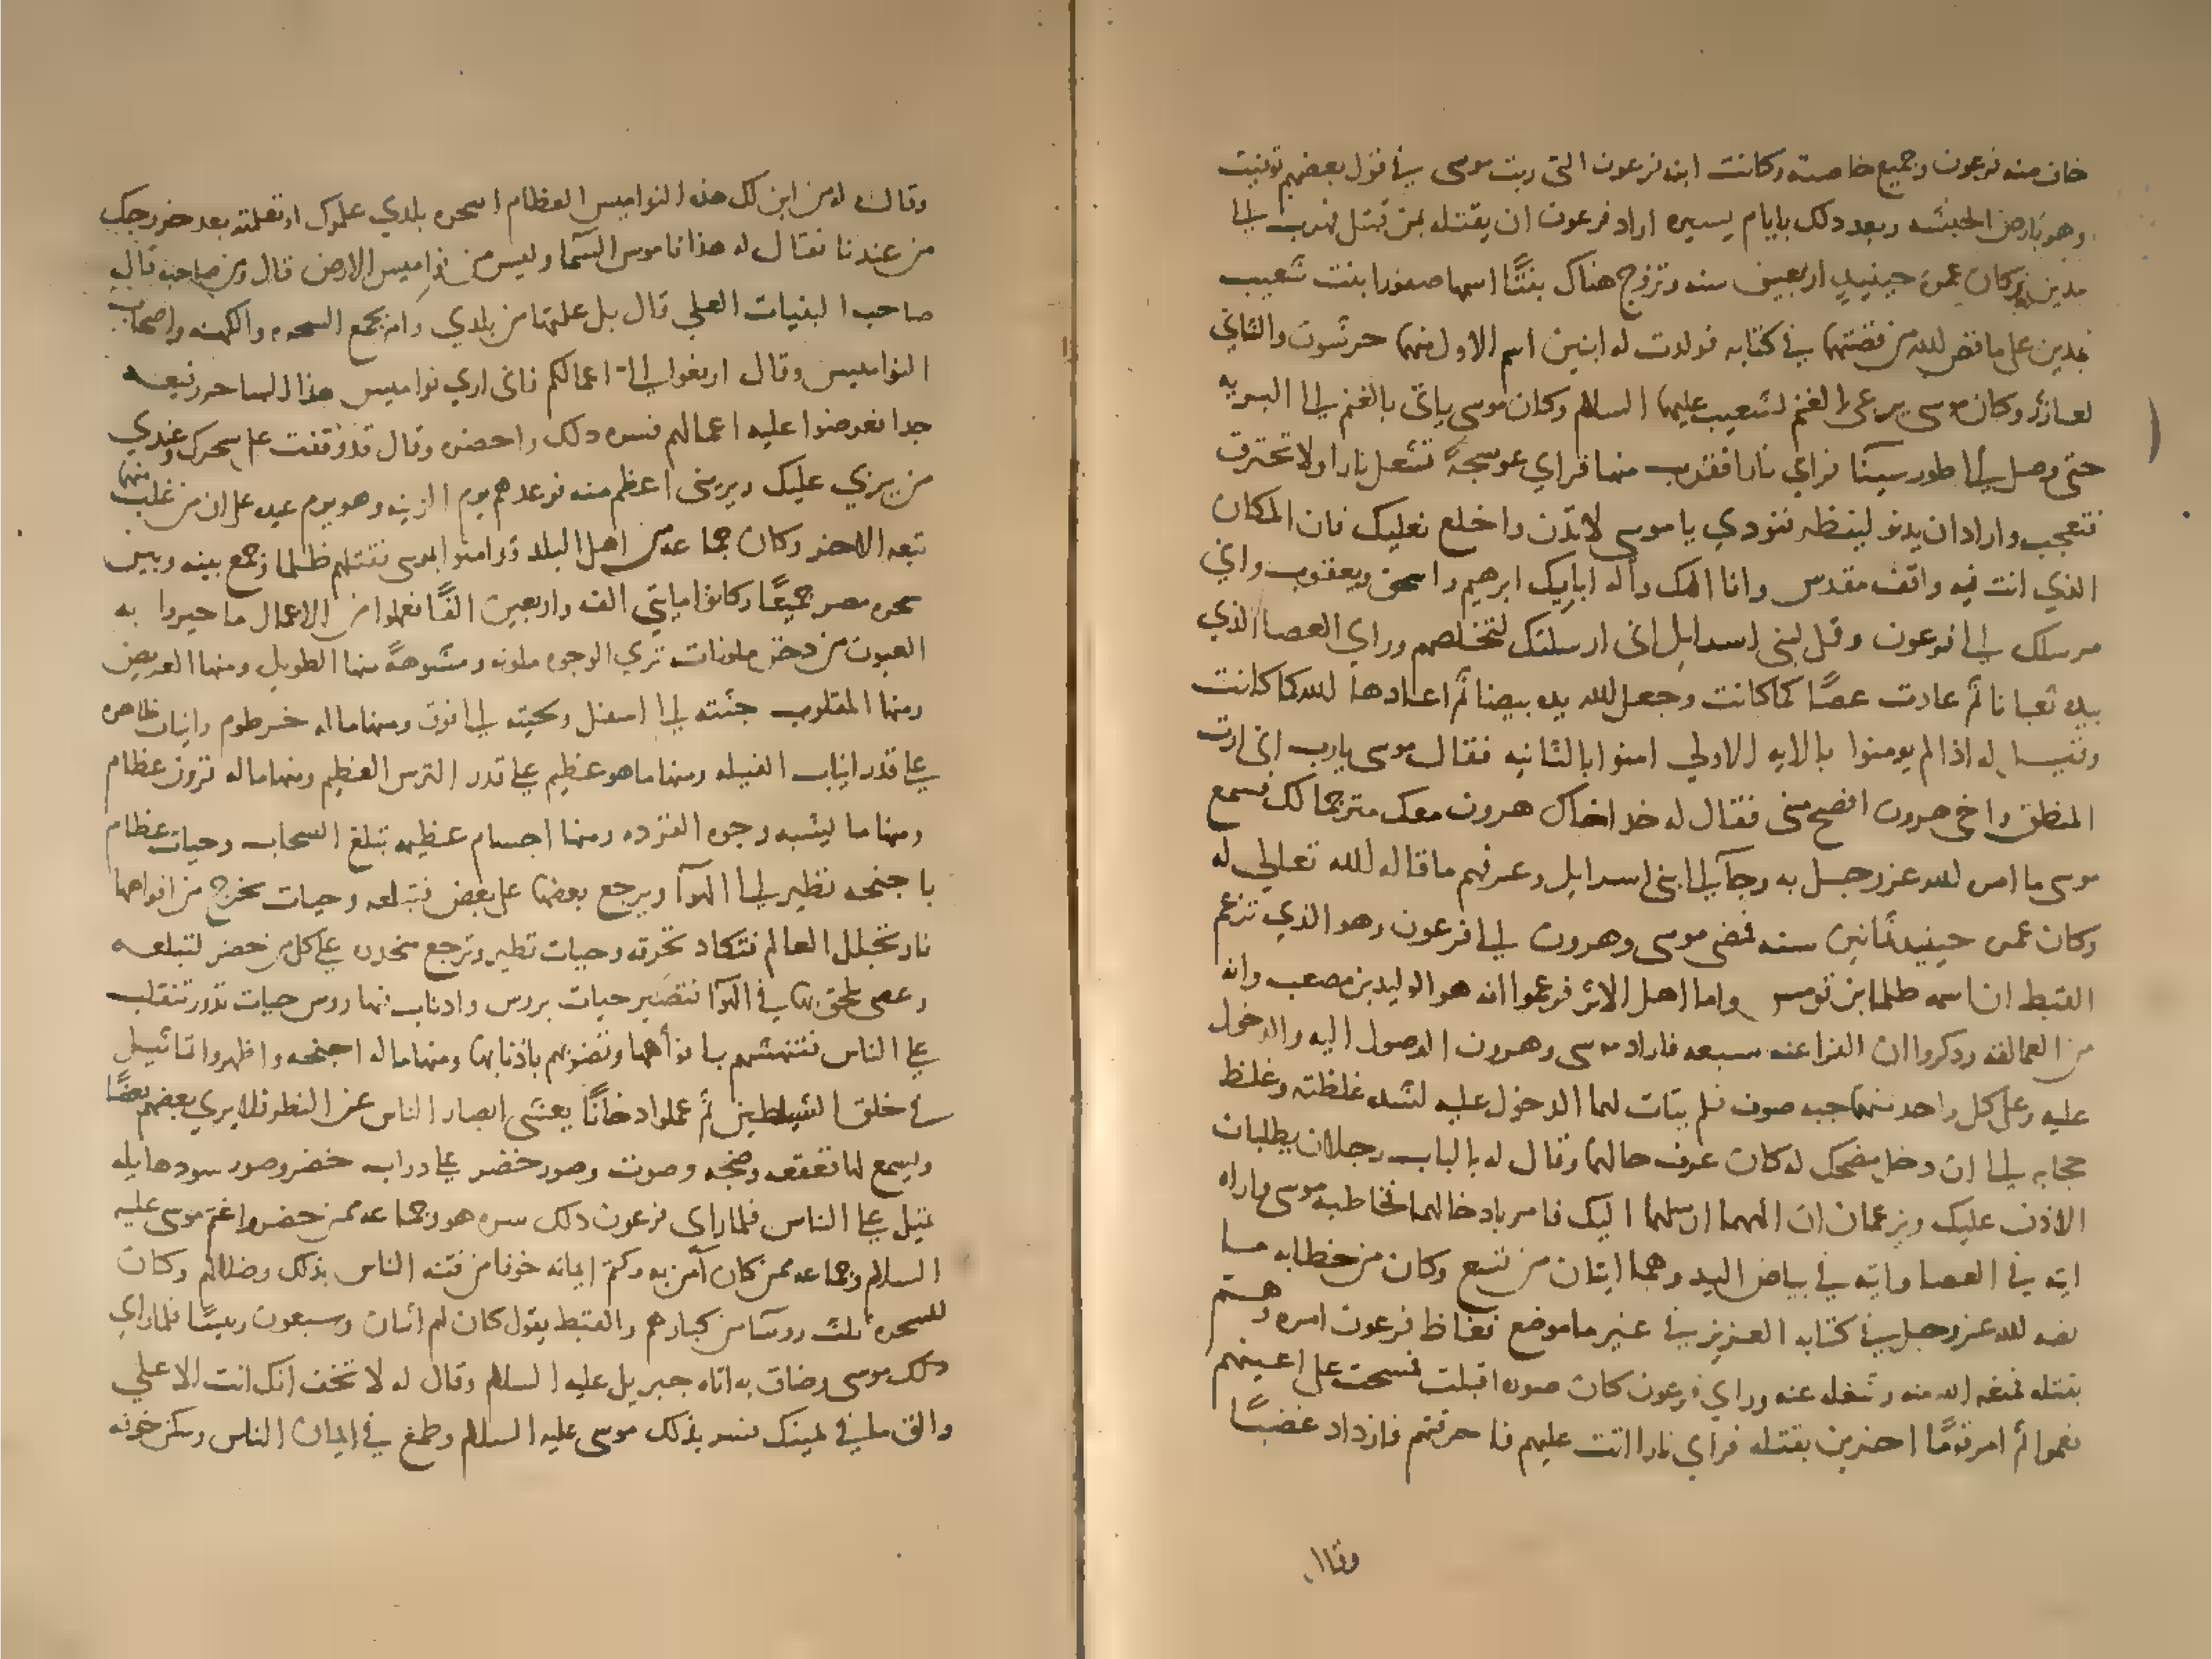 خاف منه فرعون وجميع خاصته وكانت ابنه فرعون التى ربت موسى فى قول بعضهم توفيت
وهو بارض الحبشه وبعد دلك بايام يسيره اراد فرعون ان يقتله بمن قتل فهرب الى
مدين وكان عمره حينيد اربعين سنه وتزوج هناك بنتًا اسمها صفورا ابنت شعيب
بمدين على ما قص الله من قصتهما فى كتابه فولدت له ابنين اسم الاول منهما حرشون والثانى
لعازر وكان موسى يرعى الغنم لشعيب عليهما السلام وكان موسى ياتى بالغنم الى البريه
حتى وصل الى طور سينا فراي نارا فقرب منها فراي عوسجةً تشعل نارا ولا تحترق
فتعجب واراد ان يدنو لينظر فنودي يا موسى لا تدن واخلع نعليك فان المكان
الذي انت فيه واقف مقدس وانا الهك واله ابايك ابرهيم واسحق ويعقوب وانى
مرسلك الى فرعون وقل لبنى اسرايل انى ارسلتك لتخلصهم وراي العصا الذي
بيده ثعبانا ثم عادت عصًا كما كانت وجعل الله يده بيضا ثم اعادها الله كما كانت
وقيل له اذا لم يومنوا بالايه الاولى امنوا بالثانيه فقال موسى يارب انى ارت
المنطق واخى هرون افصح منى فقال له خد اخاك هرون معك مترجما لك فسمع
موسى ما امره الله عز وجل به وجآ الى بنى اسرايل وعرفهم ما قاله الله تعالى له
وكان عمره حينيد ثمانين سنه فمضى موسى وهرون الى فرعون وهو الذي تزعم
القبط ان اسمه طلما بن قومس واما اهل الاثر فزعموا انه هو الوليد بن مصعب وانه
من العمالقه ودكروا ان الفراعنه سبعه فاراد موسى وهرون الوصول اليه والدخول
عليه وعلى كل واحد منهما جبه صوف فلم يتات لهما الدخول عليه لشده غلظته وغلظ
حجابه الى ان دخل مضحك له كان عرف حالهما وقال له بالباب رجلان يطلبان
الاذن عليك ويزعمان ان الههما ارسلهما اليك فامر بادخالهما فخاطبه موسى واراه
ايته فى العصا وايته فى بياض اليد وهما ايتان من تسع وكان من خطابه ما
نصه الله عز وجل فى كتابه العزيز فى غير ما موضع فغاظ فرعون امره وهم
بقتله فمنعه الله منه وشغله عنه وراي فرعون كان صوره اقبلت فمسحت على اعينهم
فعموا ثم امر قومًا اخرين بقتله فراي نارا اتت عليهم فاحرقتهم فازداد غضبًا
وقال
وقال له من اين لك هذه النواميس العظام اسحره بلدي علموك او تعلمته بعد خروجك
من عندنا فقال له هذا ناموس السمآ وليس من نواميس الارض قال ومن صاحبه قال
صاحب البنيات العلى قال بل علمتها من بلدي وامر بجمع السحره والكهنه واصحاب
النواميس وقال ارفعوا الى اعمالكم فانى اري نواميس هذا الساحر رفيعه
جدا فعرضوا عليه اعمالهم فسره دلك واحضره وقال قد وقفت على سحرك وعندي
من يبرزي عليك ويريني اعظم منه فوعدهم يوم الزينه وهو يوم عيد على ان من غلب منهما
تبعه الاخر وكان جماعه من اهل البلد قد امنوا بموسى فقتلهم ظلما وجمع بينه وبين
سحره مصر جميعًا وكانوا مايتى الف واربعين الفًا فعملوا من الاعمال ما حيروا به
العيون من دخن ملونات تري الوجوه ملونه ومشوهةً منها الطويل ومنها العريض
ومنها المقلوب جبته الى اسفل ولحيته الى فوق ومنها ما له خرطوم وانياب ظاهره
على قدر انياب الفيله ومنها ما هو عظيم على قدر الترس العظيم ومنها ما له قرون عظام
ومنها ما يشبه وجوه القرده ومنها اجسام عظيمه تبلغ السحاب وحيات عظام
باجنحه تطير الى الهوآ ويرجع بعضها على بعض فتبتلعه وحيات يخرج من افواهها
نار تخلل العالم فتكاد تحرقه وحيات تطير وترجع منحدره على كل من حضر لتبتلعه
وعصى تحلق بها فى الهوآ فتصير حيات بروس واذناب فيها روس حيات تدور تنقلب
على الناس فتنهشهم بافواهها وتضربهم باذنابها ومنها ما له اجنحه واظهروا تماثيل
فى خلق الشياطين ثم عملوا دخانًا يغشى ابصار الناس عن النظر فلا يري بعضهم بعضًا
ويسمع لها قعقعه وضجه وصوت وصور خضر على دواب خضر وصور سود هايله
تميل على الناس فلما راي فرعون دلك سره هو وجماعه ممن حضر واغتم موسى عليه
السلام وجماعه ممن كان آمن به وكتم ايمانه خوفا من فتنه الناس بذلك وضلالهم وكان
للسحره ثلث روسآ من كبارهم والقبط يقول كان لهم اثنان وسبعون رييسًا فلما راي
دلك موسى وضاق به اتاه جبريل عليه السلام وقال له لا تخف انك انت الاعلى
والق ما فى يمينك فسر بذلك موسى عليه السلام وطمع فى ايمان الناس وسكن خوفه